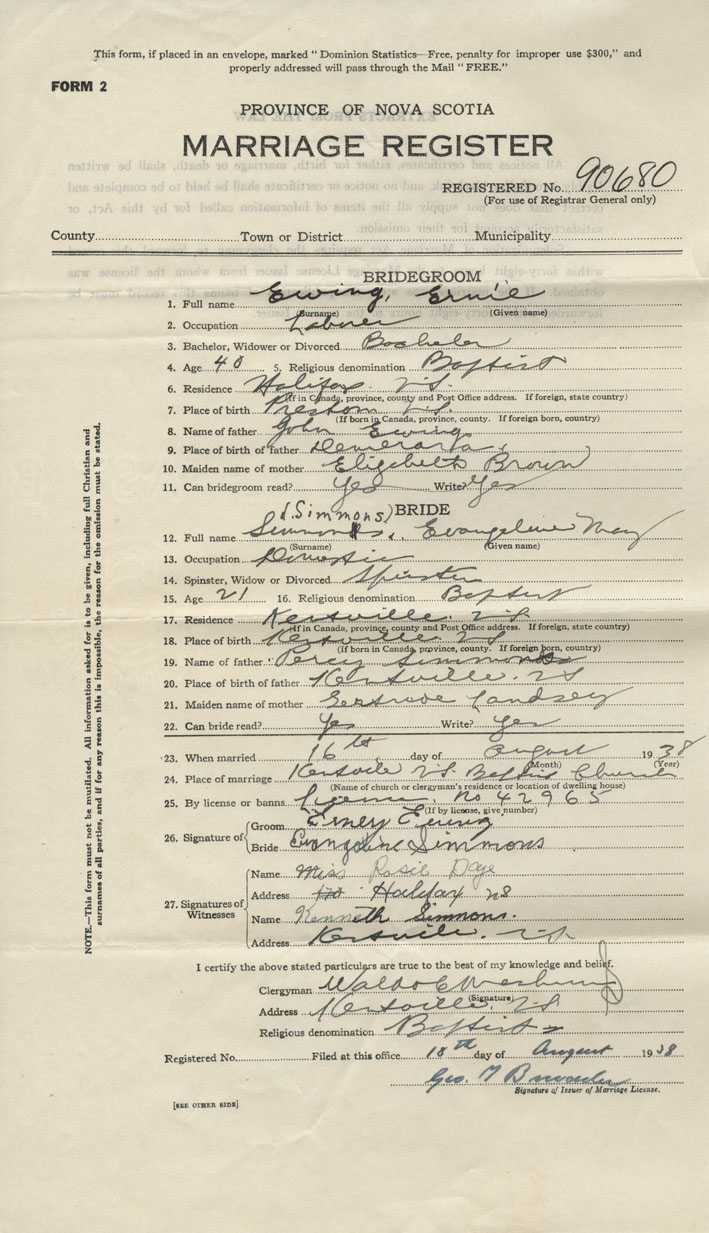 This form, if placed in an envelope, marked "Dominion Statistics—Free, penalty for improper use $300," and
properly addressed will pass through the Mail "FREE."
FORM 2
PROVINCE OF NOVA SCOTIA
MARRIAGE REGISTER
REGISTERED No. 90680
(For use of Registrar General only)
County Town or District Municipality
BRIDEGROOM
1. Full name Ewing, Ernie
(Surname) (Given name)
2. Occupation Laborer
3. Bachelor, Widower or Divorced Bachelor
4. Age 40 5. Religious denomination Baptist
6. Residence Halifax N.S.
(If in Canada, province, county and Post Office address. If foreign, state country)
7. Place of birth Preston N.S.
(If born in Canada, province, county. If foreign born, country)
8. Name of father John Ewing
9. Place of birth of father Demerara
10. Maiden name of mother Elizabeth Brown
11. Can bridegroom read? Yes Write? Yes
(Simmons) BRIDE
12. Full name Simmons, Evangeline May
(Surname) (Given name)
13. Occupation Domestic
14. Spinster, Widow or Divorced Spinster
15. Age 21 16. Religious denomination Baptist
17. Residence Kentville N.S.
(If in Canada, province, county and Post Office address. If foreign, state country)
18. Place of birth Kentville N.S.
(If born in Canada, province, county. If foreign born, country)
19. Name of father Percy Simmons
20. Place of birth of father Kentville N.S.
21. Maiden name of mother Gertrude Landsey
22. Can bride read? Yes Write? Yes
23. When married 16th day of August 1938
(Month) (Year)
24. Place of marriage Kentville N.S. Baptist Church
(Name of church or clergyman's residence or location of dwelling house)
25. By license or banns License no 42965
(If by license, give number)
26. Signature of
Groom Erney Ewing
Bride Evangeline Simmons
27. Signatures of Witnesses
Name Miss Rosie Daye
Address Halifax NS
Name Kenneth Simmons.
Address Kentville. N.S.
I certify the above stated particulars are true to the best of my knowledge and belief.
Clergyman Waldo C
(Signature)
Address Kentville, N.S
Religious denomination Baptist
Registered No. Filed at this office 18th day of August 1938
Geo. T
Signature of Issuer of Marriage License.
[SEE OTHER SIDE]
NOTE.—This form must not be mutilated. All information asked for is to be given, including full Christian and
surnames of all parties, and if for any reason this is impossible, the reason for the omission must be stated.